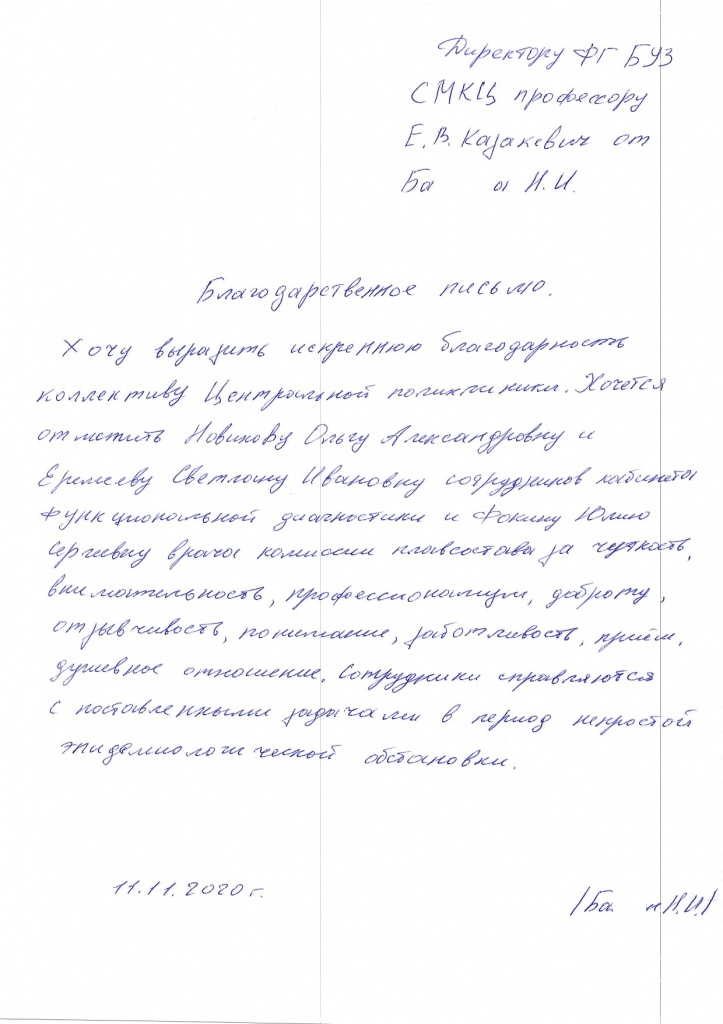 Директору ФГ БУЗ
СМКЦ профессору
Е.В. Казакевич от
Ба а Н.И.
Благодарственное письмо.
Хочу выразить искреннюю благодарность
коллективу Центральной поликлиники. Хочется
отметить Новикову Ольгу Александровну и
Еремееву Светлану Ивановну сотрудников кабинета
функциональной диагностики и Фокину Юлию
Сергеевну врача комиссии плавсостава за чуткость,
внимательность, профессионализм, доброту,
отзывчивость, понимание, заботливость, приём,
душевное отношение. Сотрудники справляются
с поставленными задачами в период непростой
эпидемиологической обстановки.
11.11.2020г.
/Ба н Н.И./